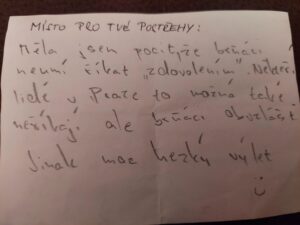 MÍSTO PRO TVÉ POSTŘEHY:
Měla jsem pocit, že brňáci
neumí říkat „zdovolením". Někteří
lidé v Praze to možná také
neříkají, ale brňáci obzvlášť
Jinak moc hezký výlet